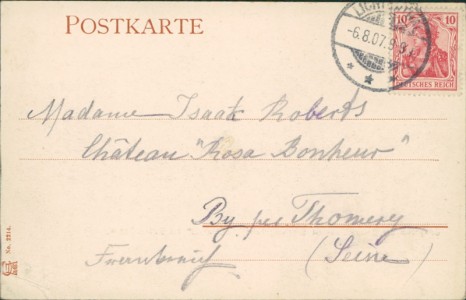 POSTKARTE
-6.8.07.
10 10
DEUTSCHES REICH
Madame Isaak Roberts
Château "Rosa Bonheur"
By per Thomery
Frankreich (Seine)
No. 2214.